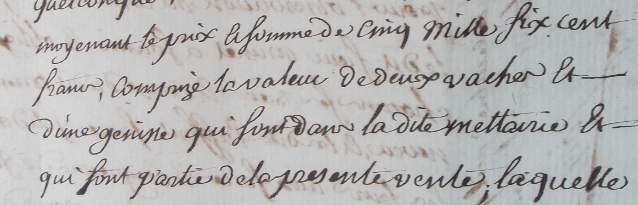 quelconque,
moyenant le prix et somme de cinq mille six cent
francs, comprize la valeur de deux vaches Et
d'une genisse qui sont dans la dite mettairie Et
qui font partie de la presente vente, laquelle